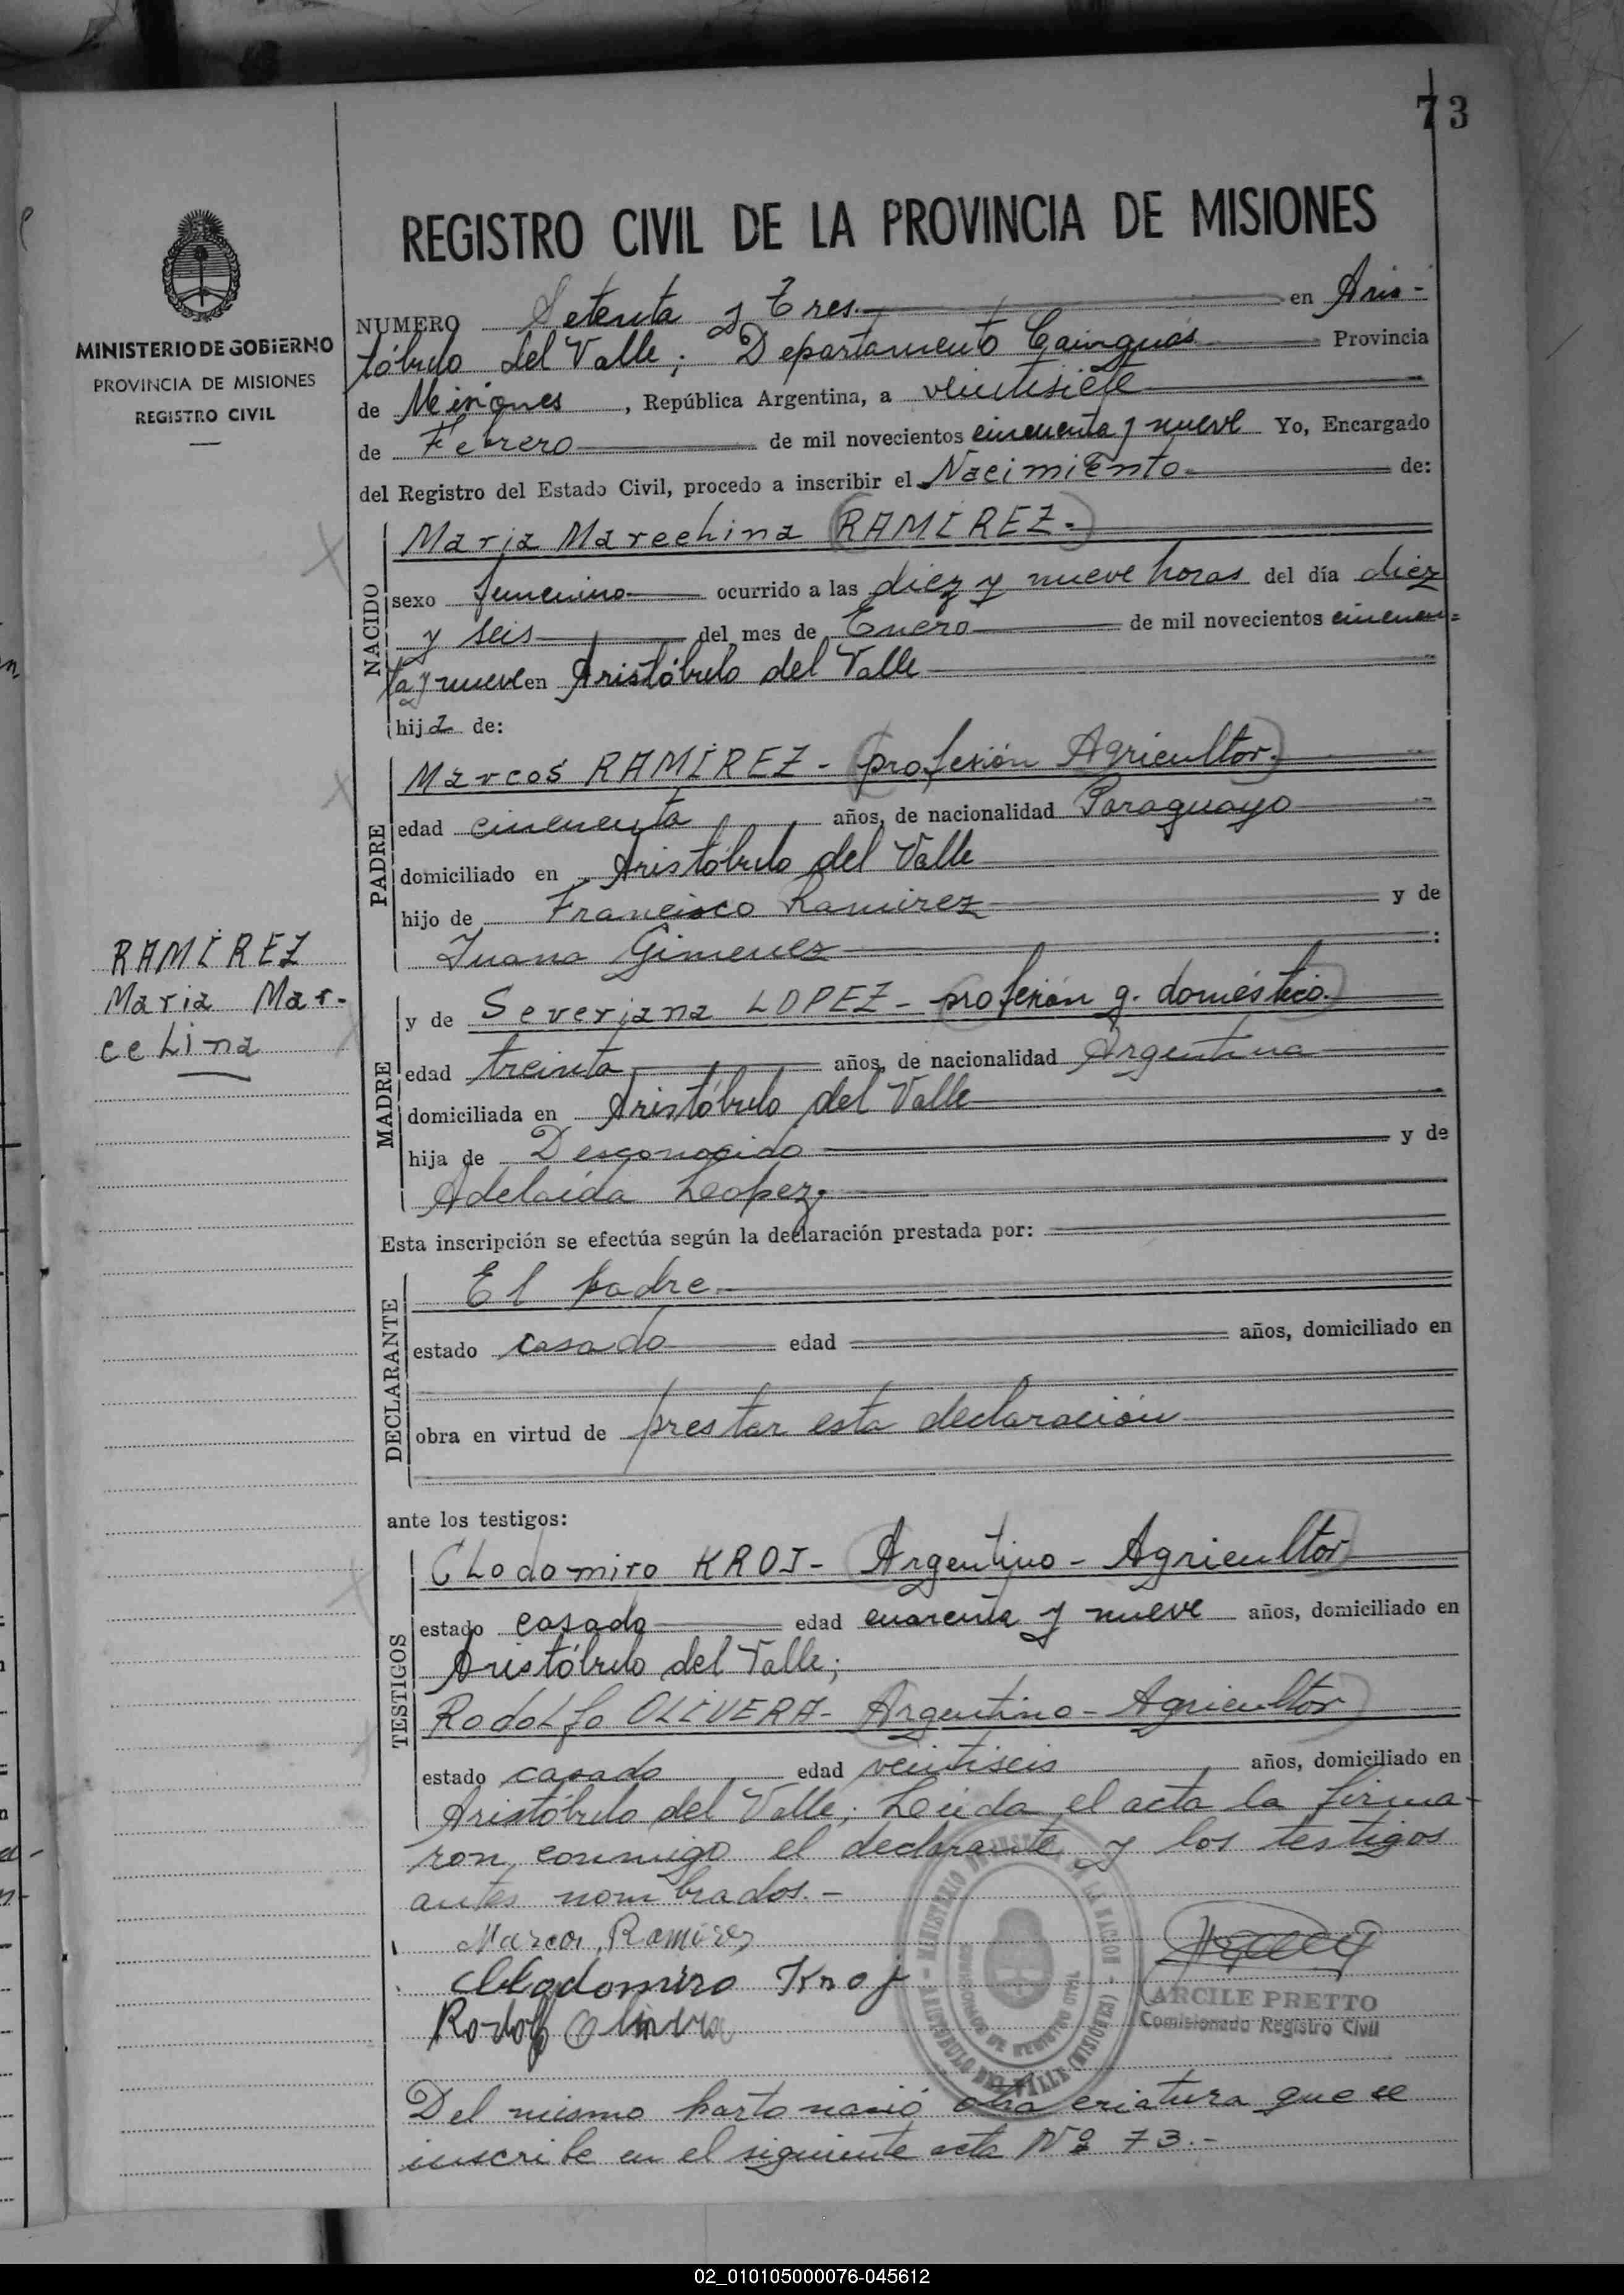 73
REGISTRO CIVIL DE LA PROVINCIA DE MISIONES
MINISTERIO DE GOBIERNO
PROVINCIA DE MISIONES
REGISTRO CIVIL
NUMERO Setenta y Tres.- en Aris-
tóbulo del Valle; Departamento Cainguás Provincia
de Misiones, República Argentina, a veintisiete
de Febrero de mil novecientos cincuenta y nueve Yo, Encargado
del Registro del Estado Civil, procedo a inscribir el Nacimiento de:
NACIDO
Maria Marcelina (RAMIREZ-)
sexo femenino ocurrido a las diez y nueve horas del día diez
y seis del mes de Enero de mil novecientos cincuen-
ta y nueve en Aristóbulo del Valle
hija de:
PADRE
Marcos RAMÍREZ - (profesión Agricultor.)
edad cincuenta años, de nacionalidad Paraguayo
domiciliado en Aristóbulo del Valle
hijo de Francisco Ramirez y de
Juana Gimenez :
RAMÍREZ
Maria Mar-
celina
MADRE
y de Severiana LOPEZ - (profesión q. doméstico.)
edad treinta años, de nacionalidad Argentina
domiciliada en Aristóbulo del Valle
hija de Desconocido y de
Adelaida Leopez.
Esta inscripción se efectúa según la declaración prestada por:
DECLARANTE
El padre.
estado casado edad años, domiciliado en
obra en virtud de prestar esta declaración
ante los testigos:
TESTIGOS
Clodomiro KROJ - (Argentino - Agricultor)
estado casado edad cuarenta y nueve años, domiciliado en
Aristóbulo del Valle;
Rodolfo OLIVERA - (Argentino - Agricultor)
estado casado edad veintiseis años, domiciliado en
Aristóbulo del Valle; Leída el acta la firma-
ron conmigo el declarante y los testigos
antes nombrados.-
Marcos Ramirez
Clodomiro Kroj
Rodolfo Olivera
ARCILE PRETTO
Comisionado Registro Civil
ARISTOBULO DEL VALLE (MISIONES)
Del mismo parto nació otra criatura que se
inscribe en el siguiente acta Nº 73.-
02_010105000076-045612